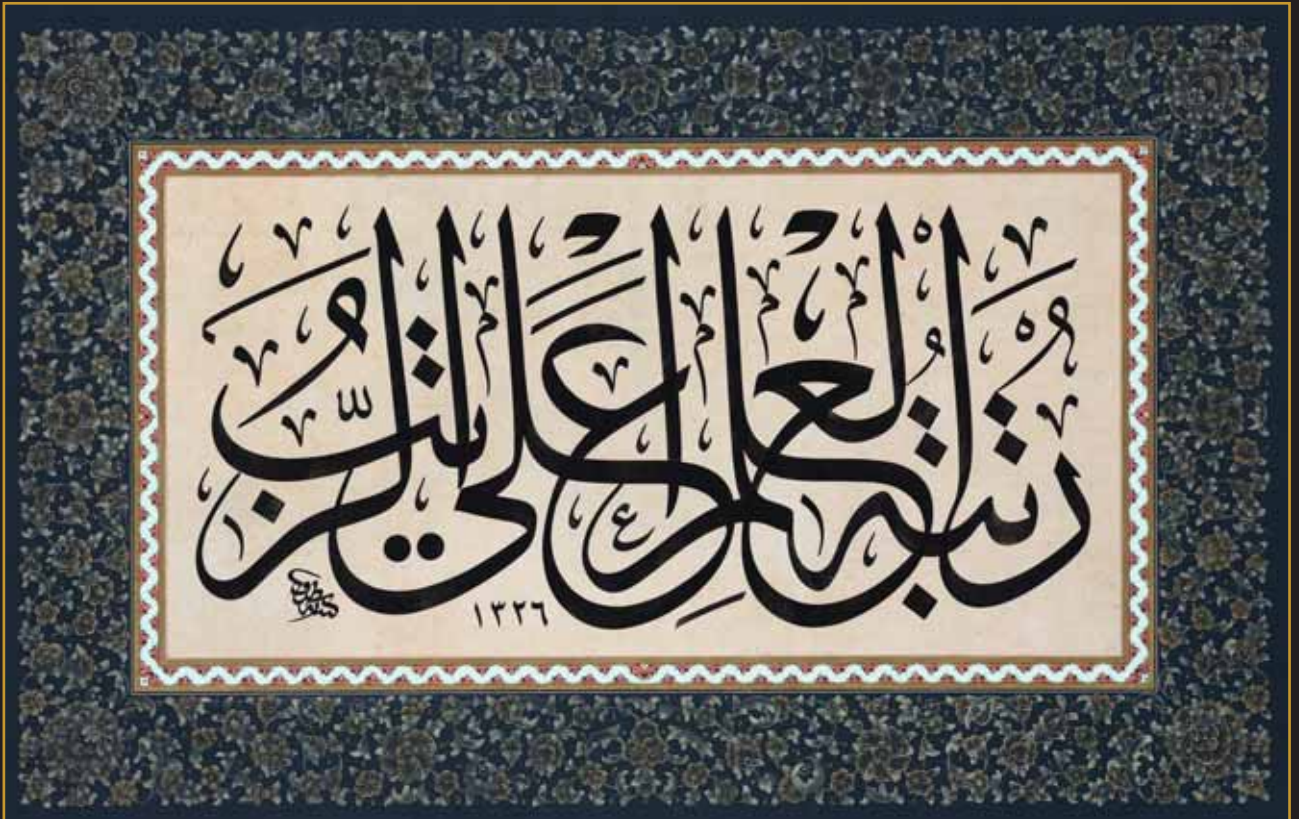 رُتْبَةُ الْعِلْمِ أَعْلَى الرُّتَبِ
١٣٢٦